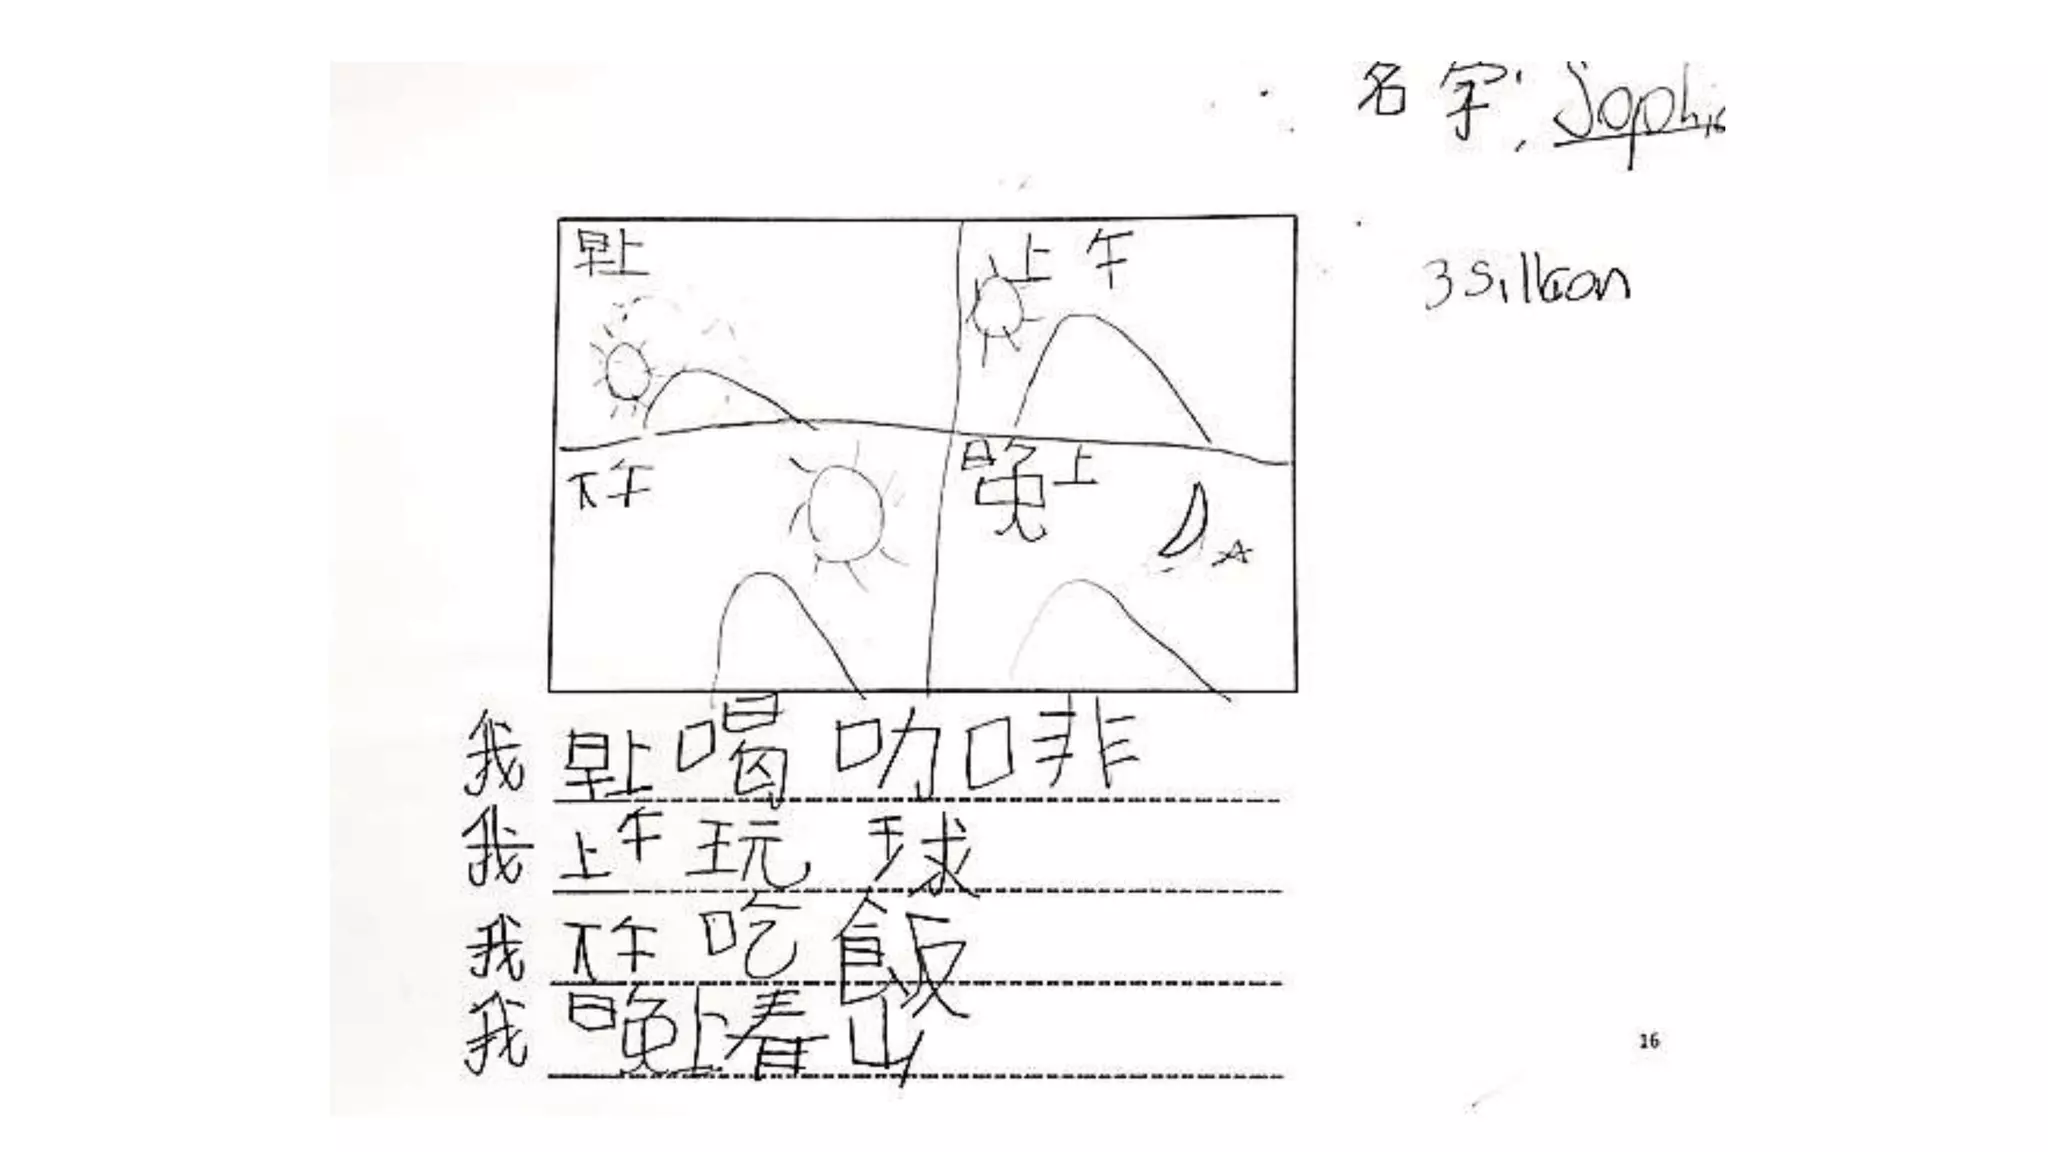 名字: Sophie
3 Silleon
早上
上午
下午
晚上
我早上喝咖啡
我上午玩球
我下午吃飯
我晚上看山
16